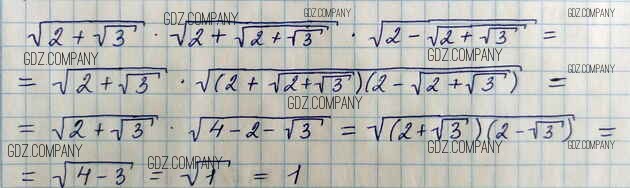 √(2 + √3) · √(2 + √(2 + √3)) · √(2 - √(2 + √3)) =
= √(2 + √3) · √((2 + √(2 + √3))(2 - √(2 + √3))) =
= √(2 + √3) · √(4 - 2 - √3) = √((2 + √3)(2 - √3)) =
= √(4 - 3) = √1 = 1
GDZ.COMPANY
GDZ.COMPANY
GDZ.COMPANY
GDZ.COMPANY
GDZ.COMPANY
GDZ.COMPANY
GDZ.COMPANY
GDZ.COMPANY
GDZ.COMPANY
GDZ.COMPANY
GDZ.COMPANY
GDZ.COMPANY